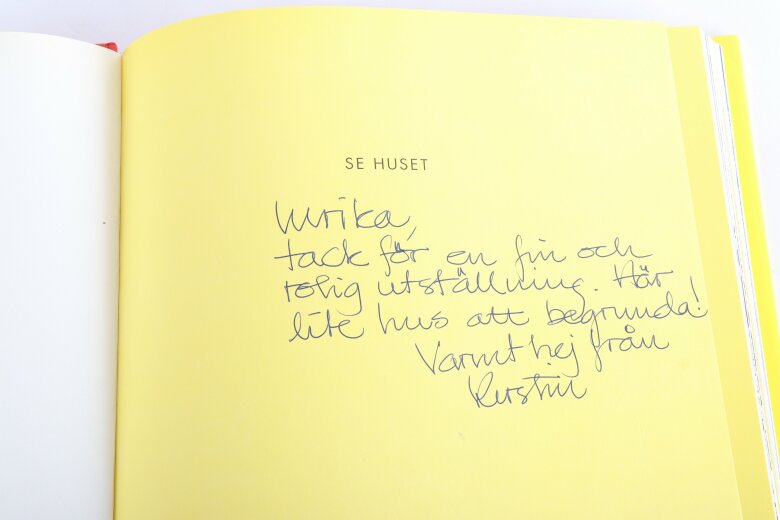 SE HUSET
Ulrika,
tack för en fin och
rolig utställning. Här
lite hus att begrunda!
Varmt hej från
Kerstin